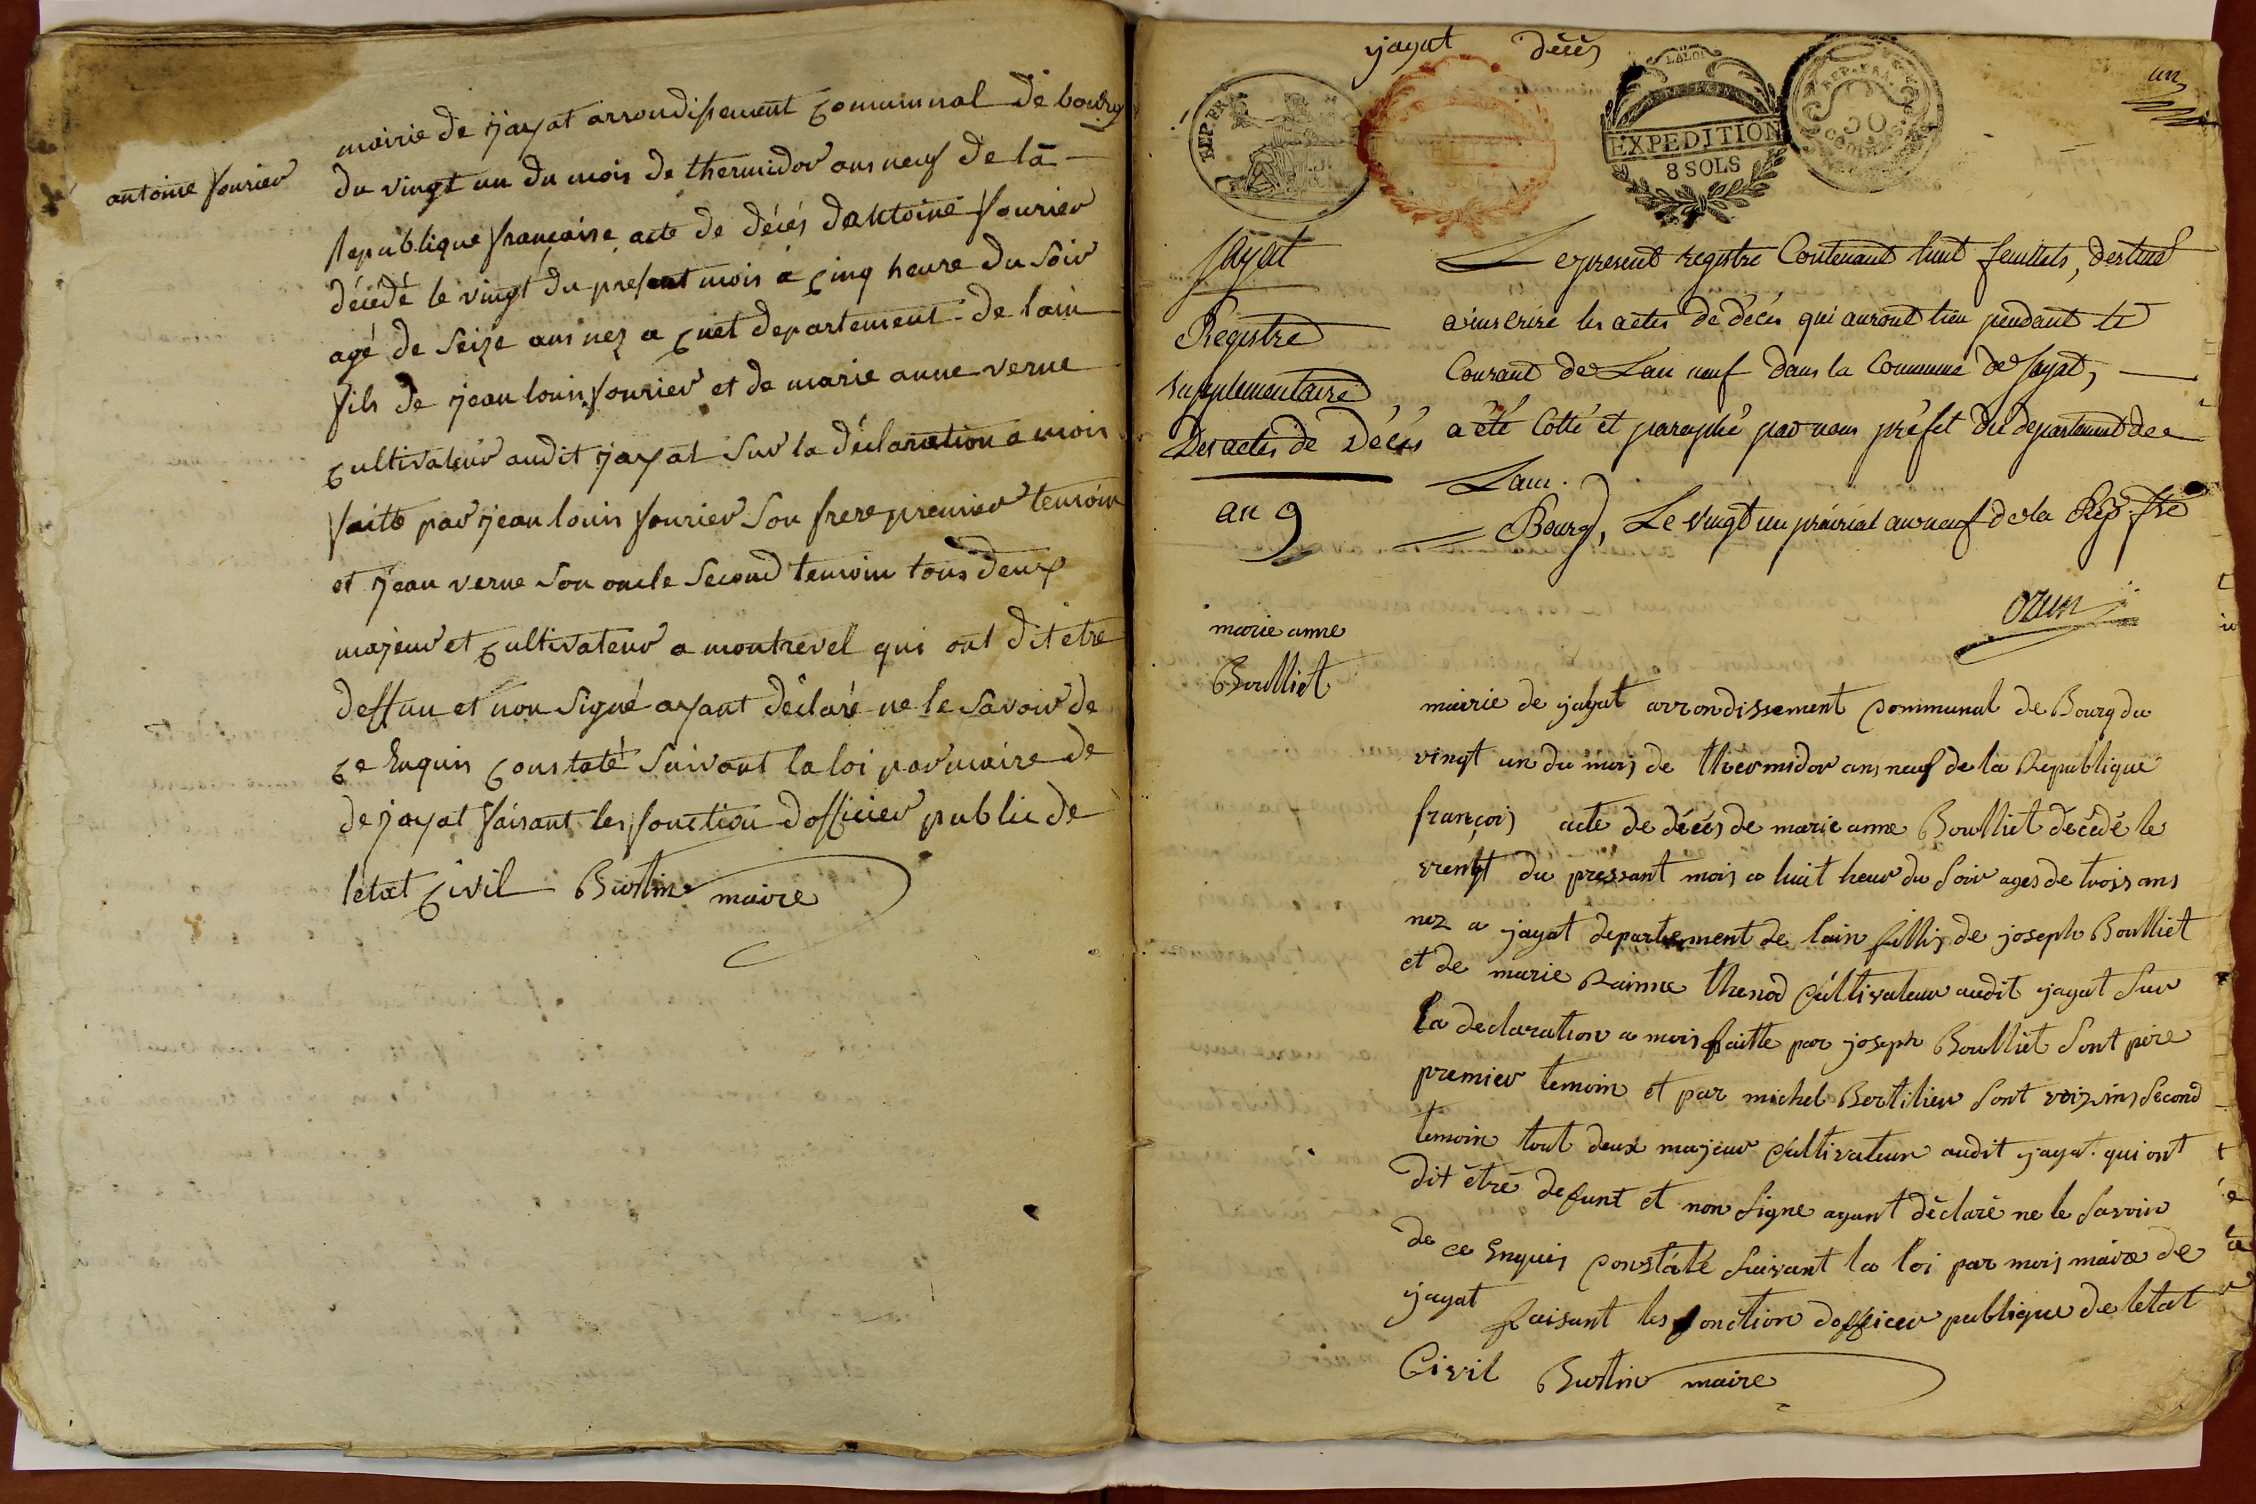 antoine fourier
mairie de jayat arrondissement communal de bourg
du vingt un du mois de thermidor ans neuf de la
Republique françaisse acte de décés dantoine fourier
décédé le vingt du present mois a cinq heure du soir
agé de seize ans nez a cuet departement de lain
fils de jean louis fourier et de marie anne verne
cultivateur audit jayat sur la déclaration a mois
faite par jean louis fourier son frere premier temoin
et jean verne son oncle second temoin tous deux
majeur et cultivateur a montrevel qui ont dit etre
deffun et non signé ayant déclaré ne le savoir de
ce Enquis constaté suivant la loi par maire de
de jayat faisant les fonction dofficier public de
letat civil Burtin maire
jayat décès
un
REP. FRA
LA LOI
EXPEDITION
8 SOLS
REP. FRA.
Jayat
Registre
supplementaire
Des actes de Décés
an 9
Le present registre Contenant huit feuillets, destiné
a inscrire les actes de décés qui auront lieu pendant le
Courant de Lan neuf dans la Commune de Jayat,
a été Cotté et paraphé par nous préfet du departement de
Lain.
Bourg, Le vingt un prairial an neuf de la Rép. fse
Ozun
marie anne
Boulliet
mairie de jayat arrondissement communal de Bourg du
vingt un du mois de thermidor ans neuf de la Republique
françois acte de décés de marie anne Boulliet décédé le
vengt du pressant mois a huit heur du soir ages de trois ans
nez a jayat departement de lain fillis de joseph Boulliet
et de marie Rainne thenod cultivateur audit jayat sur
la declaration a mois faitte par joseph Boulliet sont pere
premier temoin et par michel Bertilier sont voizins second
temoin tout deux majeur cultivateur audit jayat qui ont
dit étre defunt et non signe ayant déclaré ne le savoir
de ce Enquis constaté suivant la loi par mois maire de
jayat faisant les fonction dofficer publique de letat
Civil Burtin maire